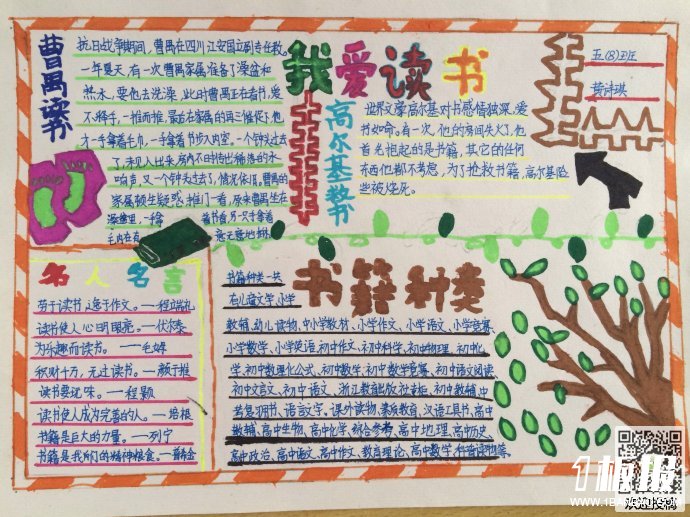 我爱读书
五(8)班
黄沛琪
曹禺读书
抗日战争期间，曹禺在四川江安国立剧专任教。
一年夏天，有一次曹禺家属准备了澡盆和
热水，要他去洗澡，此时曹禺正在看书，爱
不释手，一推再推，最后在家属的再三催促下，他
才一手拿着毛巾，一手拿着书步入内室。一个钟头过去
了，未见人出来，房内不时传出稀落的水
响声，又一个钟头过去了，情况依旧。曹禺的
家属顿生疑惑，推门一看，原来曹禺坐在
澡盆里，一手拿着书看，另一只手拿着
毛巾在有意无意地拍
高尔基救书
世界文豪高尔基对书感情独深，爱
书如命。有一次，他的房间失火了，他
首先抱起的是书籍，其它的任何
东西他都不考虑，为了抢救书籍，高尔基险
些被烧死。
名人名言
劳于读书，逸于作文。——程端礼
读书使人心明眼亮。——伏尔泰
为乐趣而读书。——毛姆
积财千万，无过读书。——颜之推
读书要玩味。——程颢
读书使人成为完善的人。——培根
书籍是巨大的力量。——列宁
书籍是我们的精神粮食。
书籍种类
书籍种类一共
有儿童文学、小学
教辅、幼儿读物、中小学教材、小学作文、小学语文、小学竞赛、
小学数学、小学英语、初中作文、初中科学、初中物理、初中化
学、初中数理化公式、初中数学、初中数学竞赛、初中语文阅读
初中文言文、初中语文、浙江教育出版社专柜、初中教辅、中
考复习书、语言文字、课外读物、素质教育、汉语工具书、高中
教辅、高中生物、高中化学、综合参考、高中地理、高中历史、
高中政治、高中语文、高中作文、教育理论、高中数学、
1板报
欢迎投稿